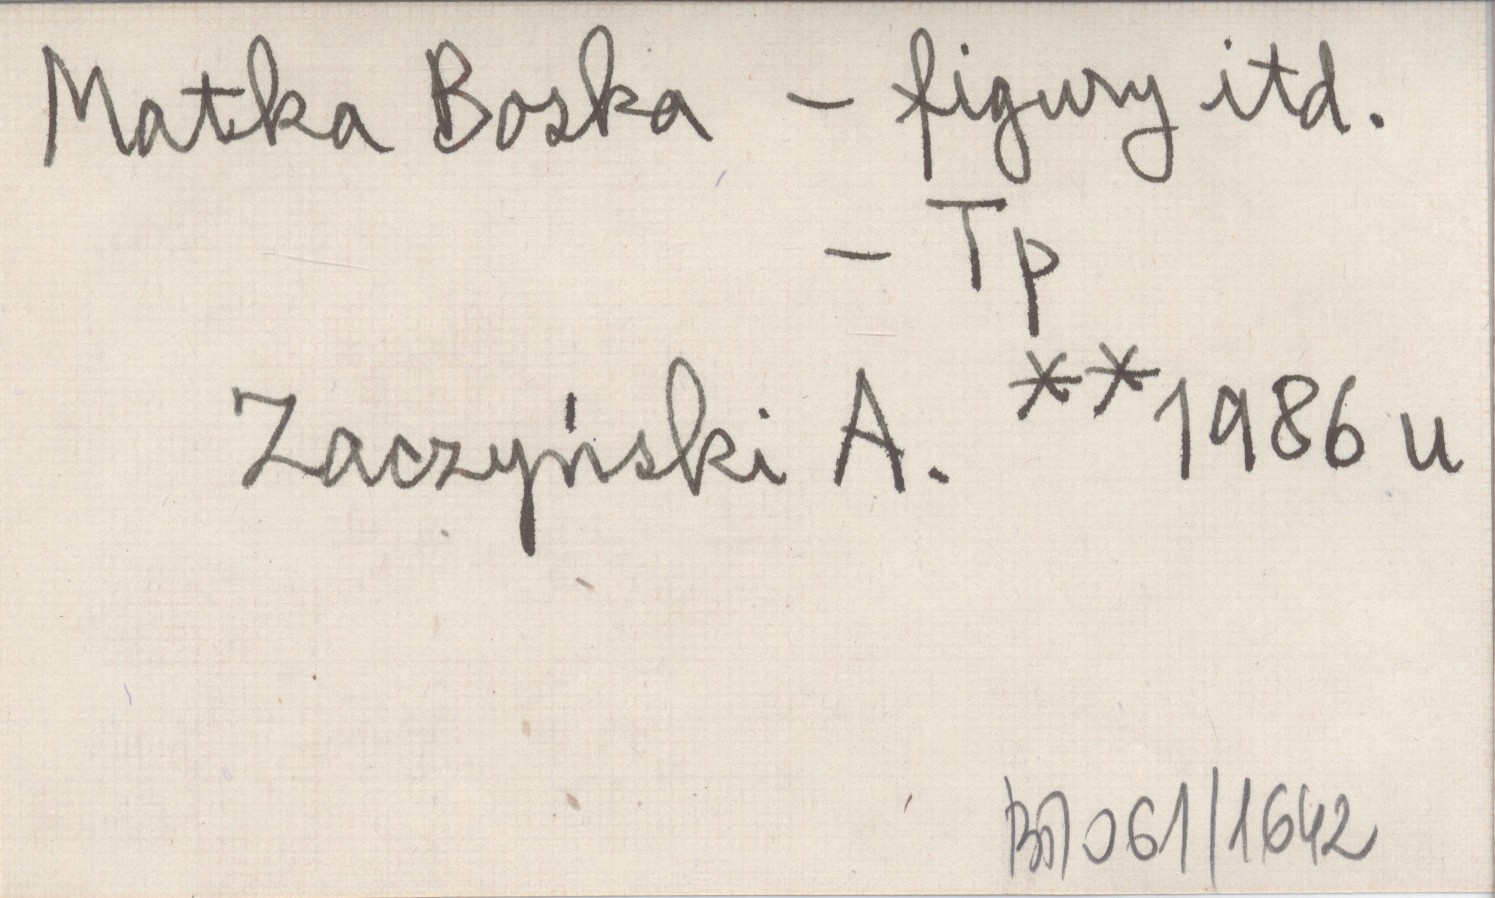 Matka Boska – figury itd.
– Tp
Zaczyński A. **1986 u
061/1642